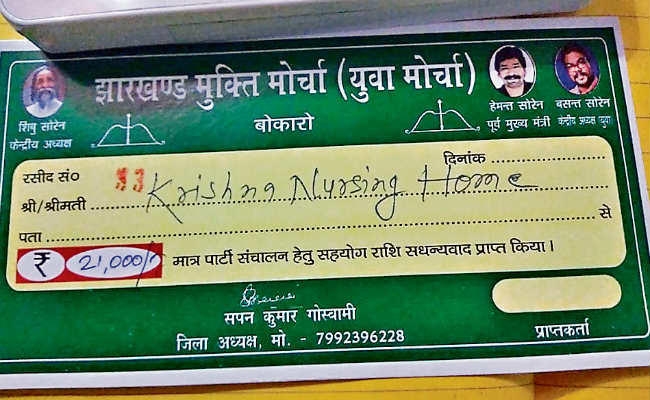 झारखण्ड मुक्ति मोर्चा (युवा मोर्चा)
बोकारो
शिबु सोरेन
केन्द्रीय अध्यक्ष
हेमन्त सोरेन
पूर्व मुख्य मंत्री
बसन्त सोरेन
केंद्रीय अध्यक्ष (युवा)
रसीद सं० 33 दिनांक
श्री/श्रीमती Krishna Nursing Home
पता से
₹ 21,000/- मात्र पार्टी संचालन हेतु सहयोग राशि सधन्यवाद प्राप्त किया।
सपन कुमार गोस्वामी
जिला अध्यक्ष, मो. - 7992396228
प्राप्तकर्ता